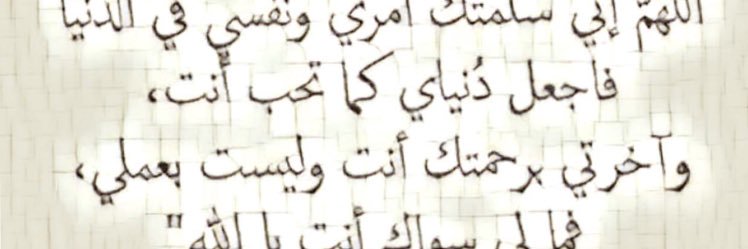 اللهم إني سلمتك أمري ونفسي في الدنيا
فاجعل دُنياي كما تحب أنت،
وآخرتي برحمتك أنت وليست بعملي،
فما لي سواك أنت يا الله"